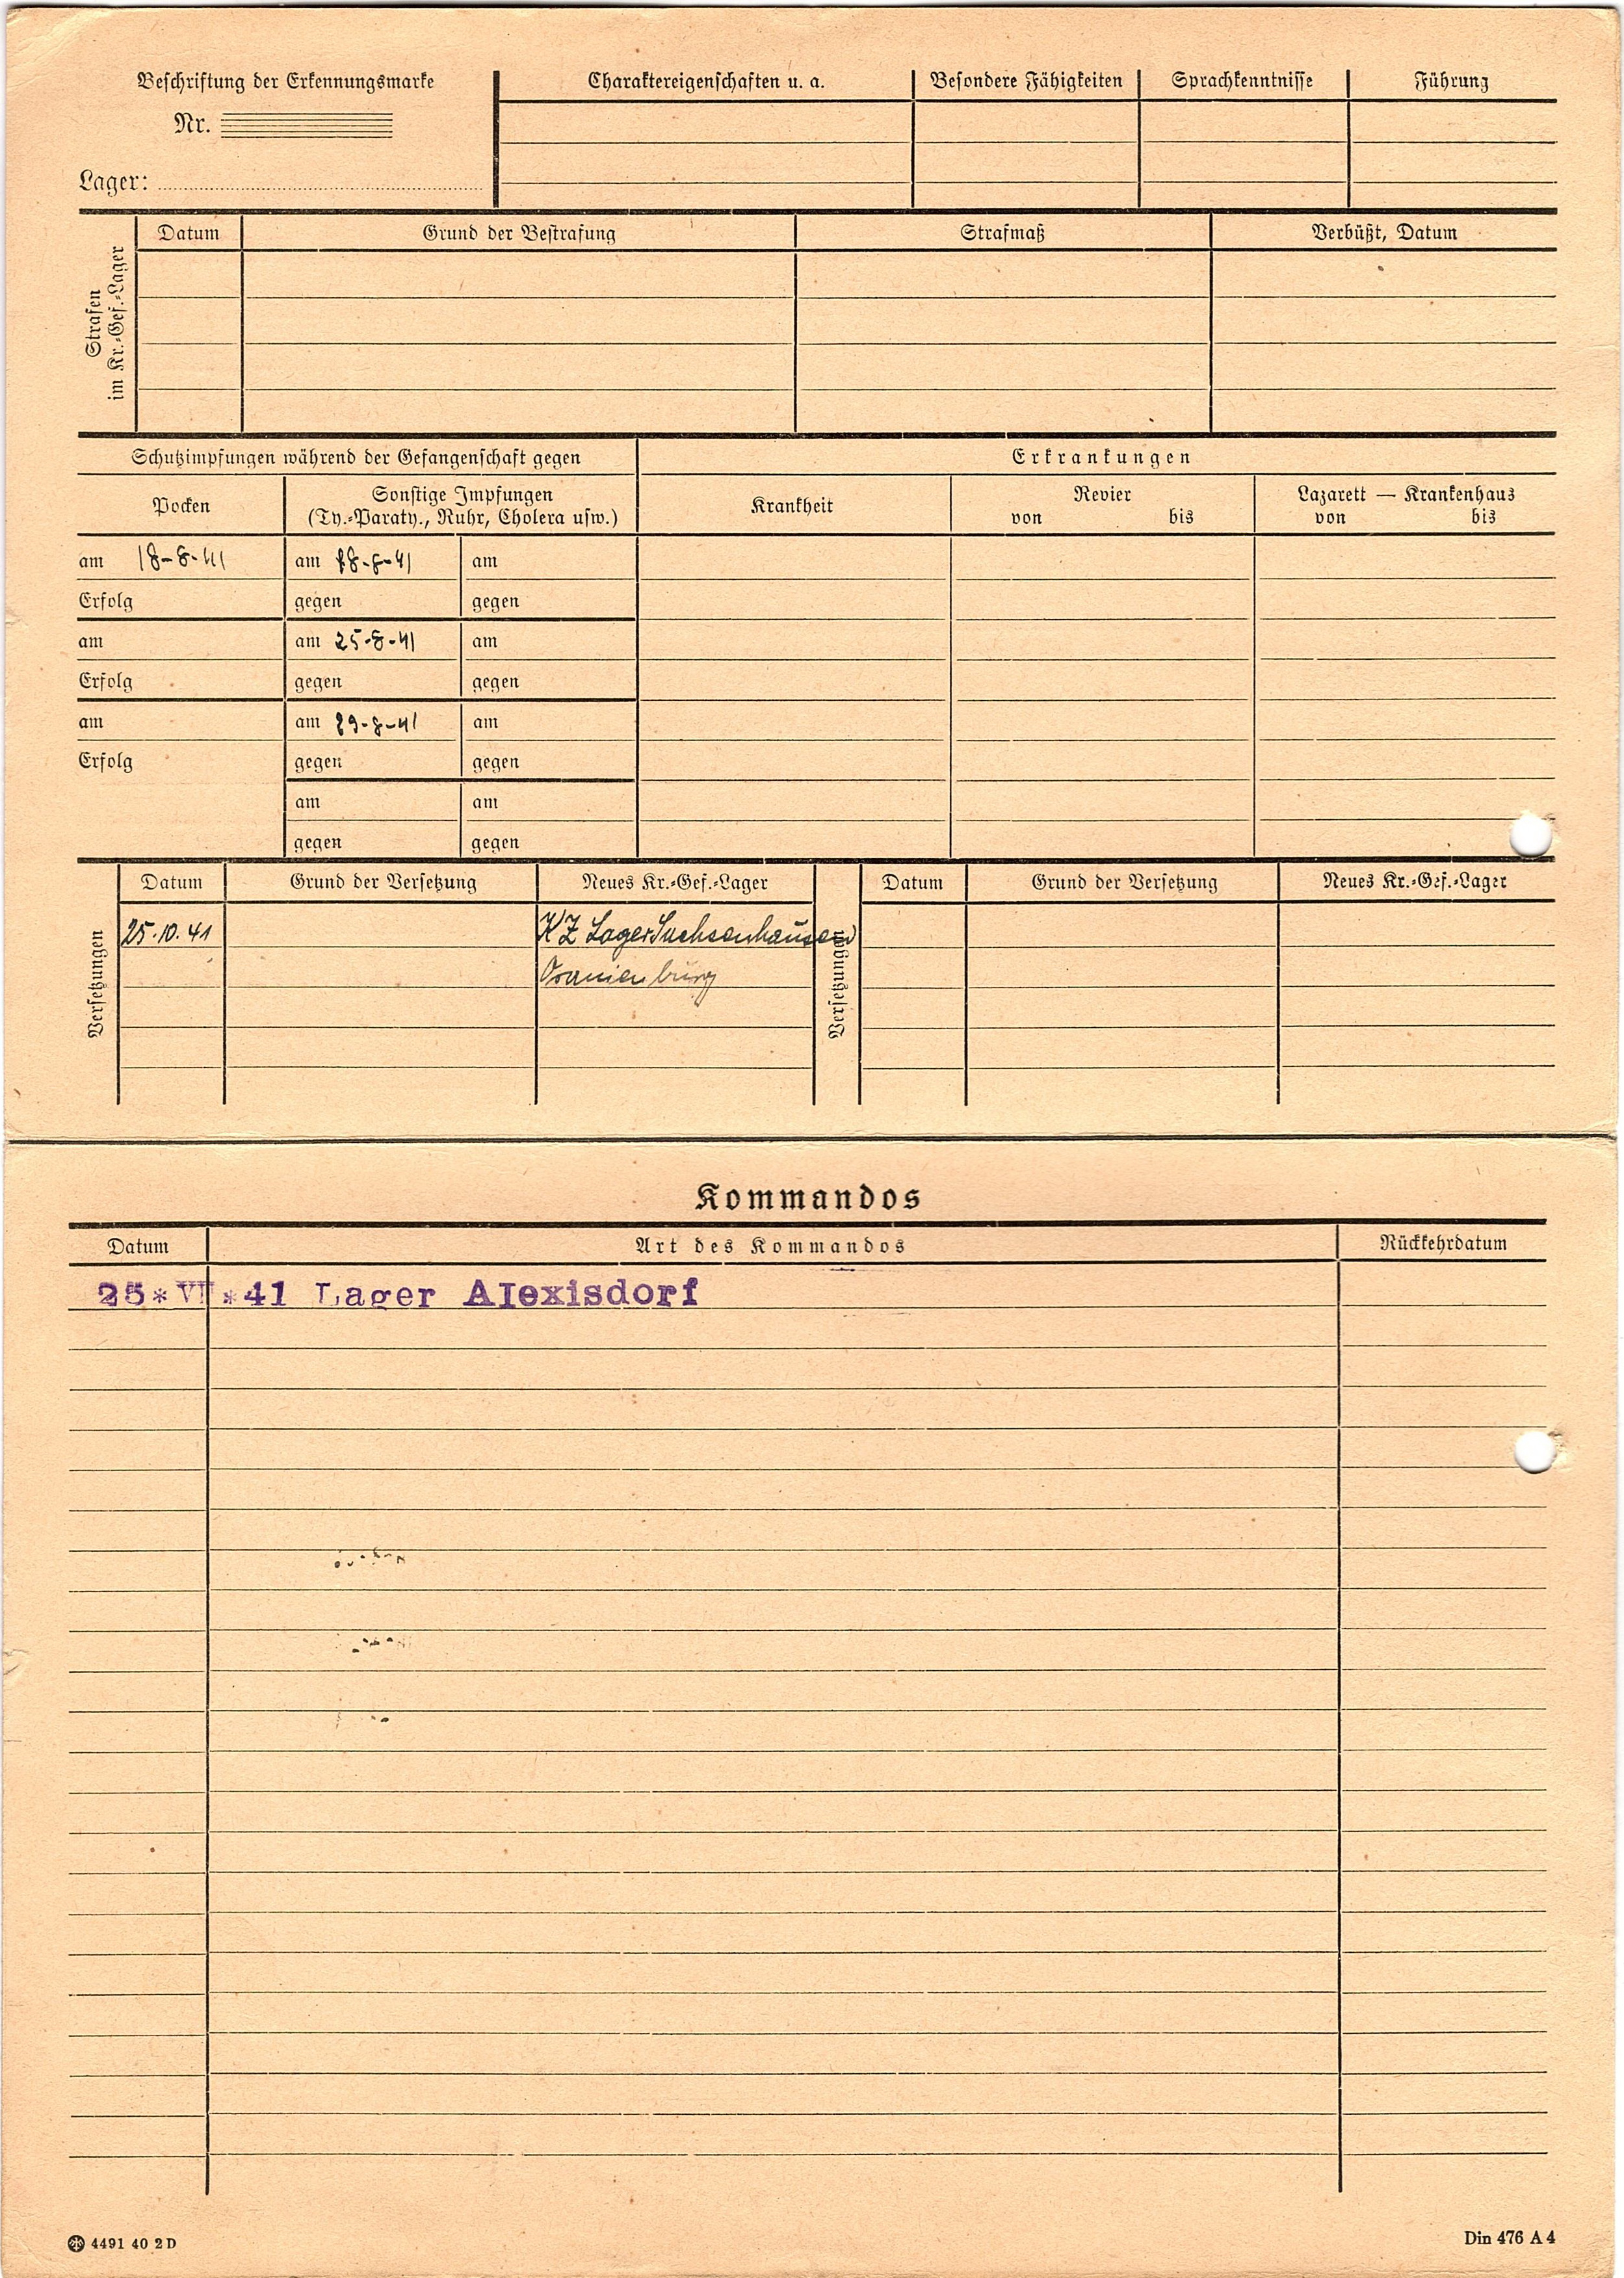 Beschriftung der Erkennungsmarke
Nr.
Lager:
Charaktereigenschaften u. a.
Besondere Fähigkeiten
Sprachkenntnisse
Führung
Strafen
im Kr.-Gef.-Lager
Datum
Grund der Bestrafung
Strafmaß
Verbüßt, Datum
Schutzimpfungen während der Gefangenschaft gegen
Erkrankungen
Pocken
Sonstige Impfungen
(Ty.-Paraty., Ruhr, Cholera usw.)
Krankheit
Revier
von bis
Lazarett — Krankenhaus
von bis
am 18-8-41 am 18-8-41 am
Erfolg gegen gegen
am am 25-8-41 am
Erfolg gegen gegen
am am 29-8-41 am
Erfolg gegen gegen
am am
gegen gegen
Versetzungen
Datum Grund der Versetzung Neues Kr.-Gef.-Lager
25.10.41 KZ Lager Sachsenhausen
Oranienburg
Versetzungen
Datum Grund der Versetzung Neues Kr.-Gef.-Lager
Kommandos
Datum Art des Kommandos Rückkehrdatum
25*VII*41 Lager Alexisdorf
4491 40 2 D
Din 476 A 4